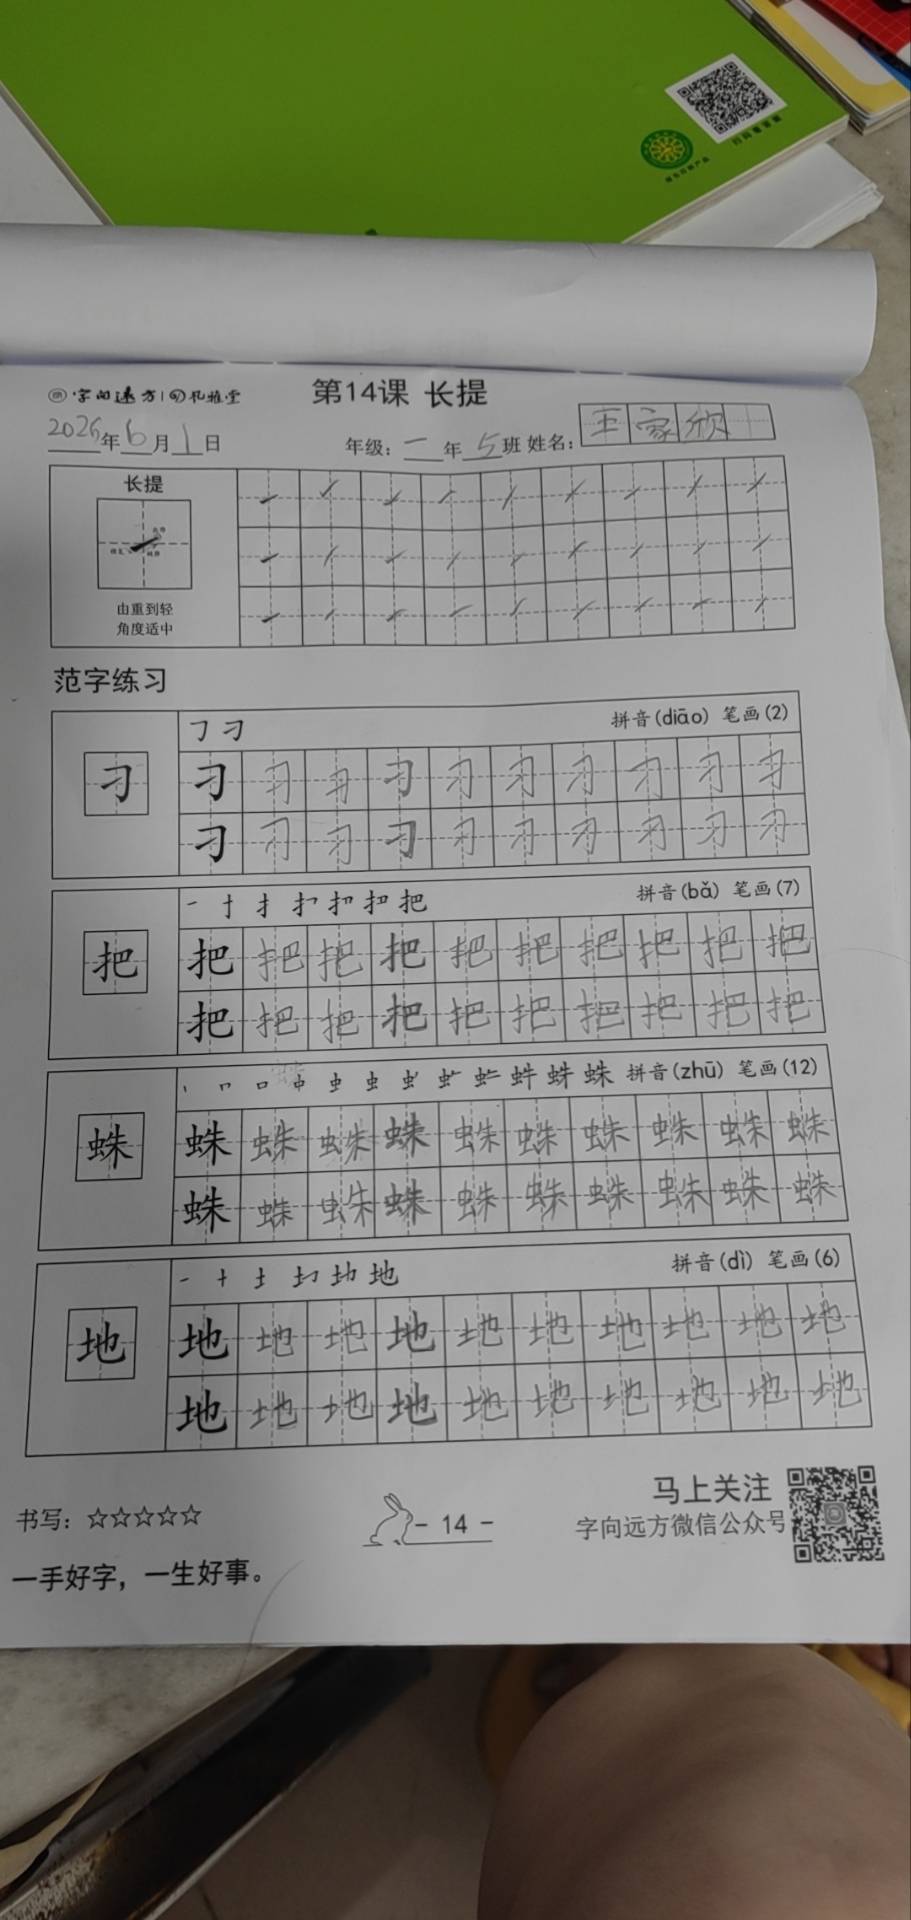 字向远方 | 孔雅堂
第14课 长提
2026年6月1日
年级：二年5班 姓名：王家颀
长提
由重到轻
角度适中
范字练习
㇆ 刁
拼音(diāo) 笔画(2)
刁 刁 刁 刁 刁 刁 刁 刁 刁 刁 刁
刁 刁 刁 刁 刁 刁 刁 刁 刁 刁
一 十 扌 扌 扣 扣 把
拼音(bǎ) 笔画(7)
把 把 把 把 把 把 把 把 把 把 把
把 把 把 把 把 把 把 把 把 把
丶 口 口 中 虫 虫 虫 蛛 拼音(zhū) 笔画(12)
蛛 蛛 蛛 蛛 蛛 蛛 蛛 蛛 蛛 蛛 蛛
蛛 蛛 蛛 蛛 蛛 蛛 蛛 蛛 蛛 蛛
一 十 土 圠 地 地
拼音(dì) 笔画(6)
地 地 地 地 地 地 地 地 地 地 地
地 地 地 地 地 地 地 地 地 地
书写：☆☆☆☆☆
- 14 -
马上关注
字向远方微信公众号
一手好字，一生好事。